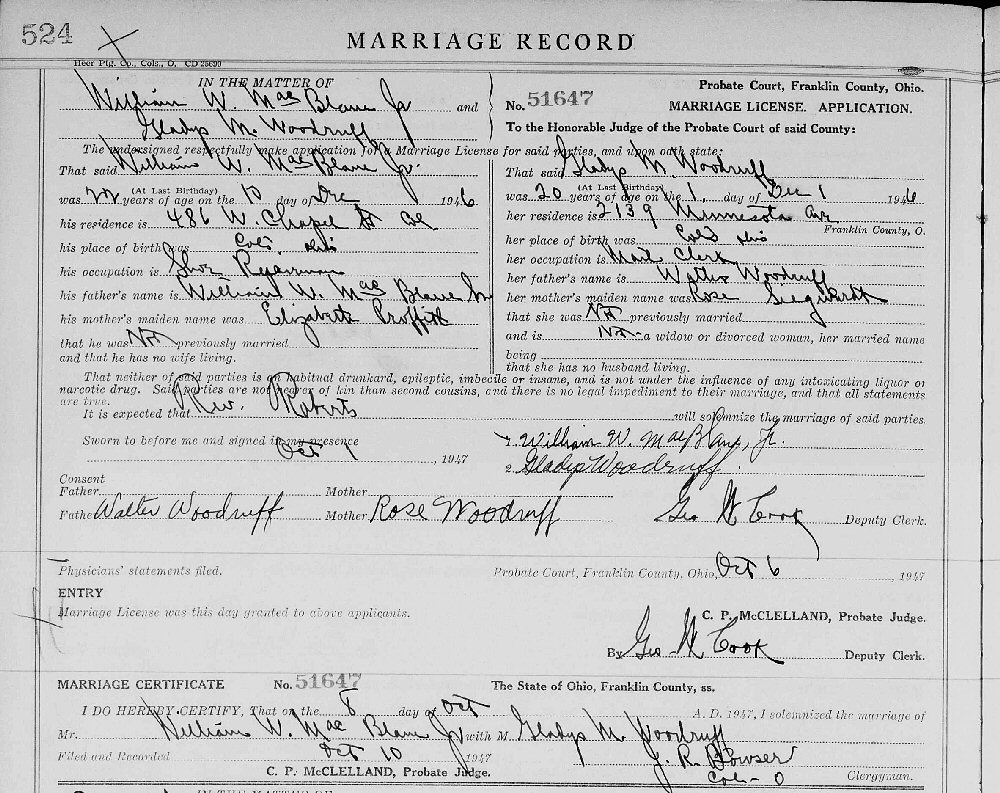 524
MARRIAGE RECORD
Heer Ptg. Co., Cols., O. CD 25690
IN THE MATTER OF
William W. MacBlane Jr and
Gladys M. Woodruff
Probate Court, Franklin County, Ohio.
No. 51647 MARRIAGE LICENSE. APPLICATION.
To the Honorable Judge of the Probate Court of said County:
The undersigned respectfully make application for a Marriage License for said parties, and upon oath state:
That said William W. MacBlane Jr.
was 22 years of age on the 10 day of Dec 1946
(At Last Birthday)
his residence is 486 W. Chapel St Col
his place of birth was Cols Ohio
his occupation is Shoe Repairman
his father's name is William W. MacBlane Sr
his mother's maiden name was Elizabeth Proffitt
that he was Not previously married
and that he has no wife living.
That said Gladys M. Woodruff
was 20 years of age on the 1 day of Dec 1 1946
(At Last Birthday)
her residence is 2139 Minnesota Ave
Franklin County, O.
her place of birth was Cols Ohio
her occupation is Mail Clerk
her father's name is Walter Woodruff
her mother's maiden name was Rose
that she was Not previously married
and is Not a widow or divorced woman, her married name
being
that she has no husband living.
That neither of said parties is an habitual drunkard, epileptic, imbecile or insane, and is not under the influence of any intoxicating liquor or
narcotic drug. Said parties are not nearer of kin than second cousins, and there is no legal impediment to their marriage, and that all statements
are true.
It is expected that Rev. Roberts will solemnize the marriage of said parties.
Sworn to before me and signed in my presence
Oct 1, 1947
1. William W. MacBlane, Jr.
2. Gladys Woodruff
Consent
Father Mother
Father Walter Woodruff Mother Rose Woodruff Geo W Cook Deputy Clerk.
Physicians' statements filed. Probate Court, Franklin County, Ohio, Oct 6, 1947
ENTRY
Marriage License was this day granted to above applicants.
C. P. McCLELLAND, Probate Judge.
By Geo W Cook Deputy Clerk.
MARRIAGE CERTIFICATE No. 51647 The State of Ohio, Franklin County, ss.
I DO HEREBY CERTIFY, That on the 8 day of Oct A. D. 1947, I solemnized the marriage of
Mr. William W. MacBlane Jr with M Gladys M. Woodruff
Filed and Recorded Oct 10 1947 J. R. Bowser
C. P. McCLELLAND, Probate Judge. Col- O Clergyman.
IN THE MATTER OF